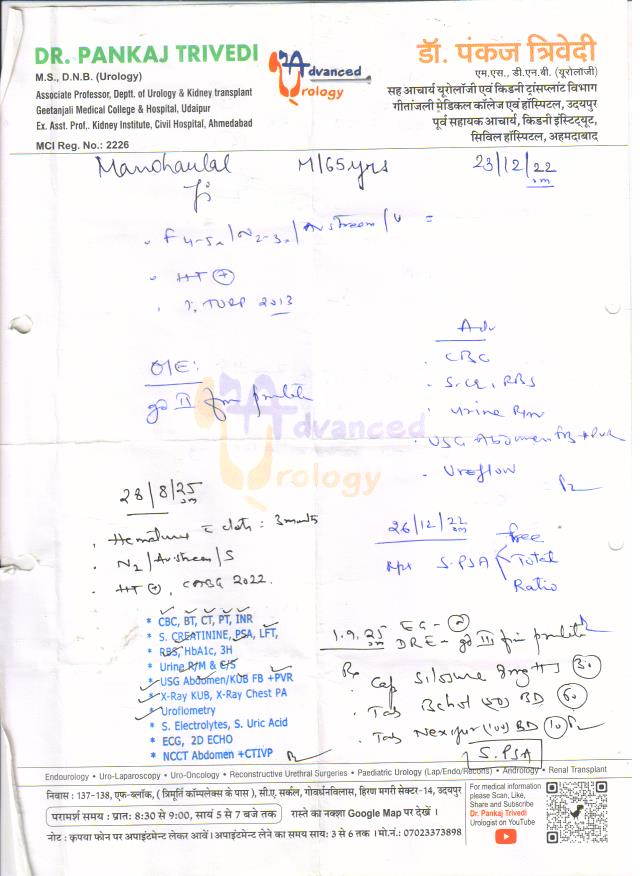 DR. PANKAJ TRIVEDI
M.S., D.N.B. (Urology)
Associate Professor, Deptt. of Urology & Kidney transplant
Geetanjali Medical College & Hospital, Udaipur
Ex. Asst. Prof,. Kidney Institute, Civil Hospital, Ahmedabad
MCI Reg. No.: 2226
Advanced
Urology
डॉ. पंकज त्रिवेदी
एम.एस., डी.एन.बी. (यूरोलॉजी)
सह आचार्य यूरोलॉजी एवं किडनी ट्रांसप्लांट विभाग
गीतांजली मेडिकल कॉलेज एवं हॉस्पिटल, उदयपुर
पूर्व सहायक आचार्य, किडनी इंस्टिट्यूट,
सिविल हॉस्पिटल, अहमदाबाद
M/65yrs 23/12/22
HT +
TURP 2013
O/E:
gd II firm prostate
Adv
CBC
S.Cr, RBS
Urine R/M
USG Abdomen FB + PVR
Uroflow
Advanced
Urology
26/12/22
Rpt S.PSA free
Total
Ratio
28/8/25
Hematuria c clots : 3 months
N2/Av stream/S
HT +, CABG 2022.
* CBC, BT, CT, PT, INR
* S. CREATININE, PSA, LFT,
* RBS, HbA1c, 3H
* Urine R/M & C/S
* USG Abdomen/KUB FB +PVR
* X-Ray KUB, X-Ray Chest PA
* Uroflometry
* S. Electrolytes, S. Uric Acid
* ECG, 2D ECHO
* NCCT Abdomen +CTIVP
1.9.25
DRE - gd III firm prostate
Cap Silosure 8mg 30
Tab BD 60
Tab BD 10
S.PSA
Endourology • Uro-Laparoscopy • Uro-Oncology • Reconstructive Urethral Surgeries • Paediatric Urology (Lap/Endo/Recons) • Andrology • Renal Transplant
निवास : 137-138, एफ-ब्लॉक, ( त्रिमूर्ति कॉम्पलेक्स के पास ), सी.ए. सर्कल, गोवर्धनविलास, हिरण मगरी सेक्टर-14, उदयपुर
परामर्श समय : प्रातः 8:30 से 9:00, सायं 5 से 7 बजे तक रास्ते का नक्शा Google Map पर देखें ।
नोट : कृपया फोन पर अपाइंटमेन्ट लेकर आवें । अपाइंटमेन्ट लेने का समय सायः 3 से 6 तक । मो.नं.: 07023373898
For medical information
please Scan, Like,
Share and Subscribe
Dr. Pankaj Trivedi
Urologist on YouTube